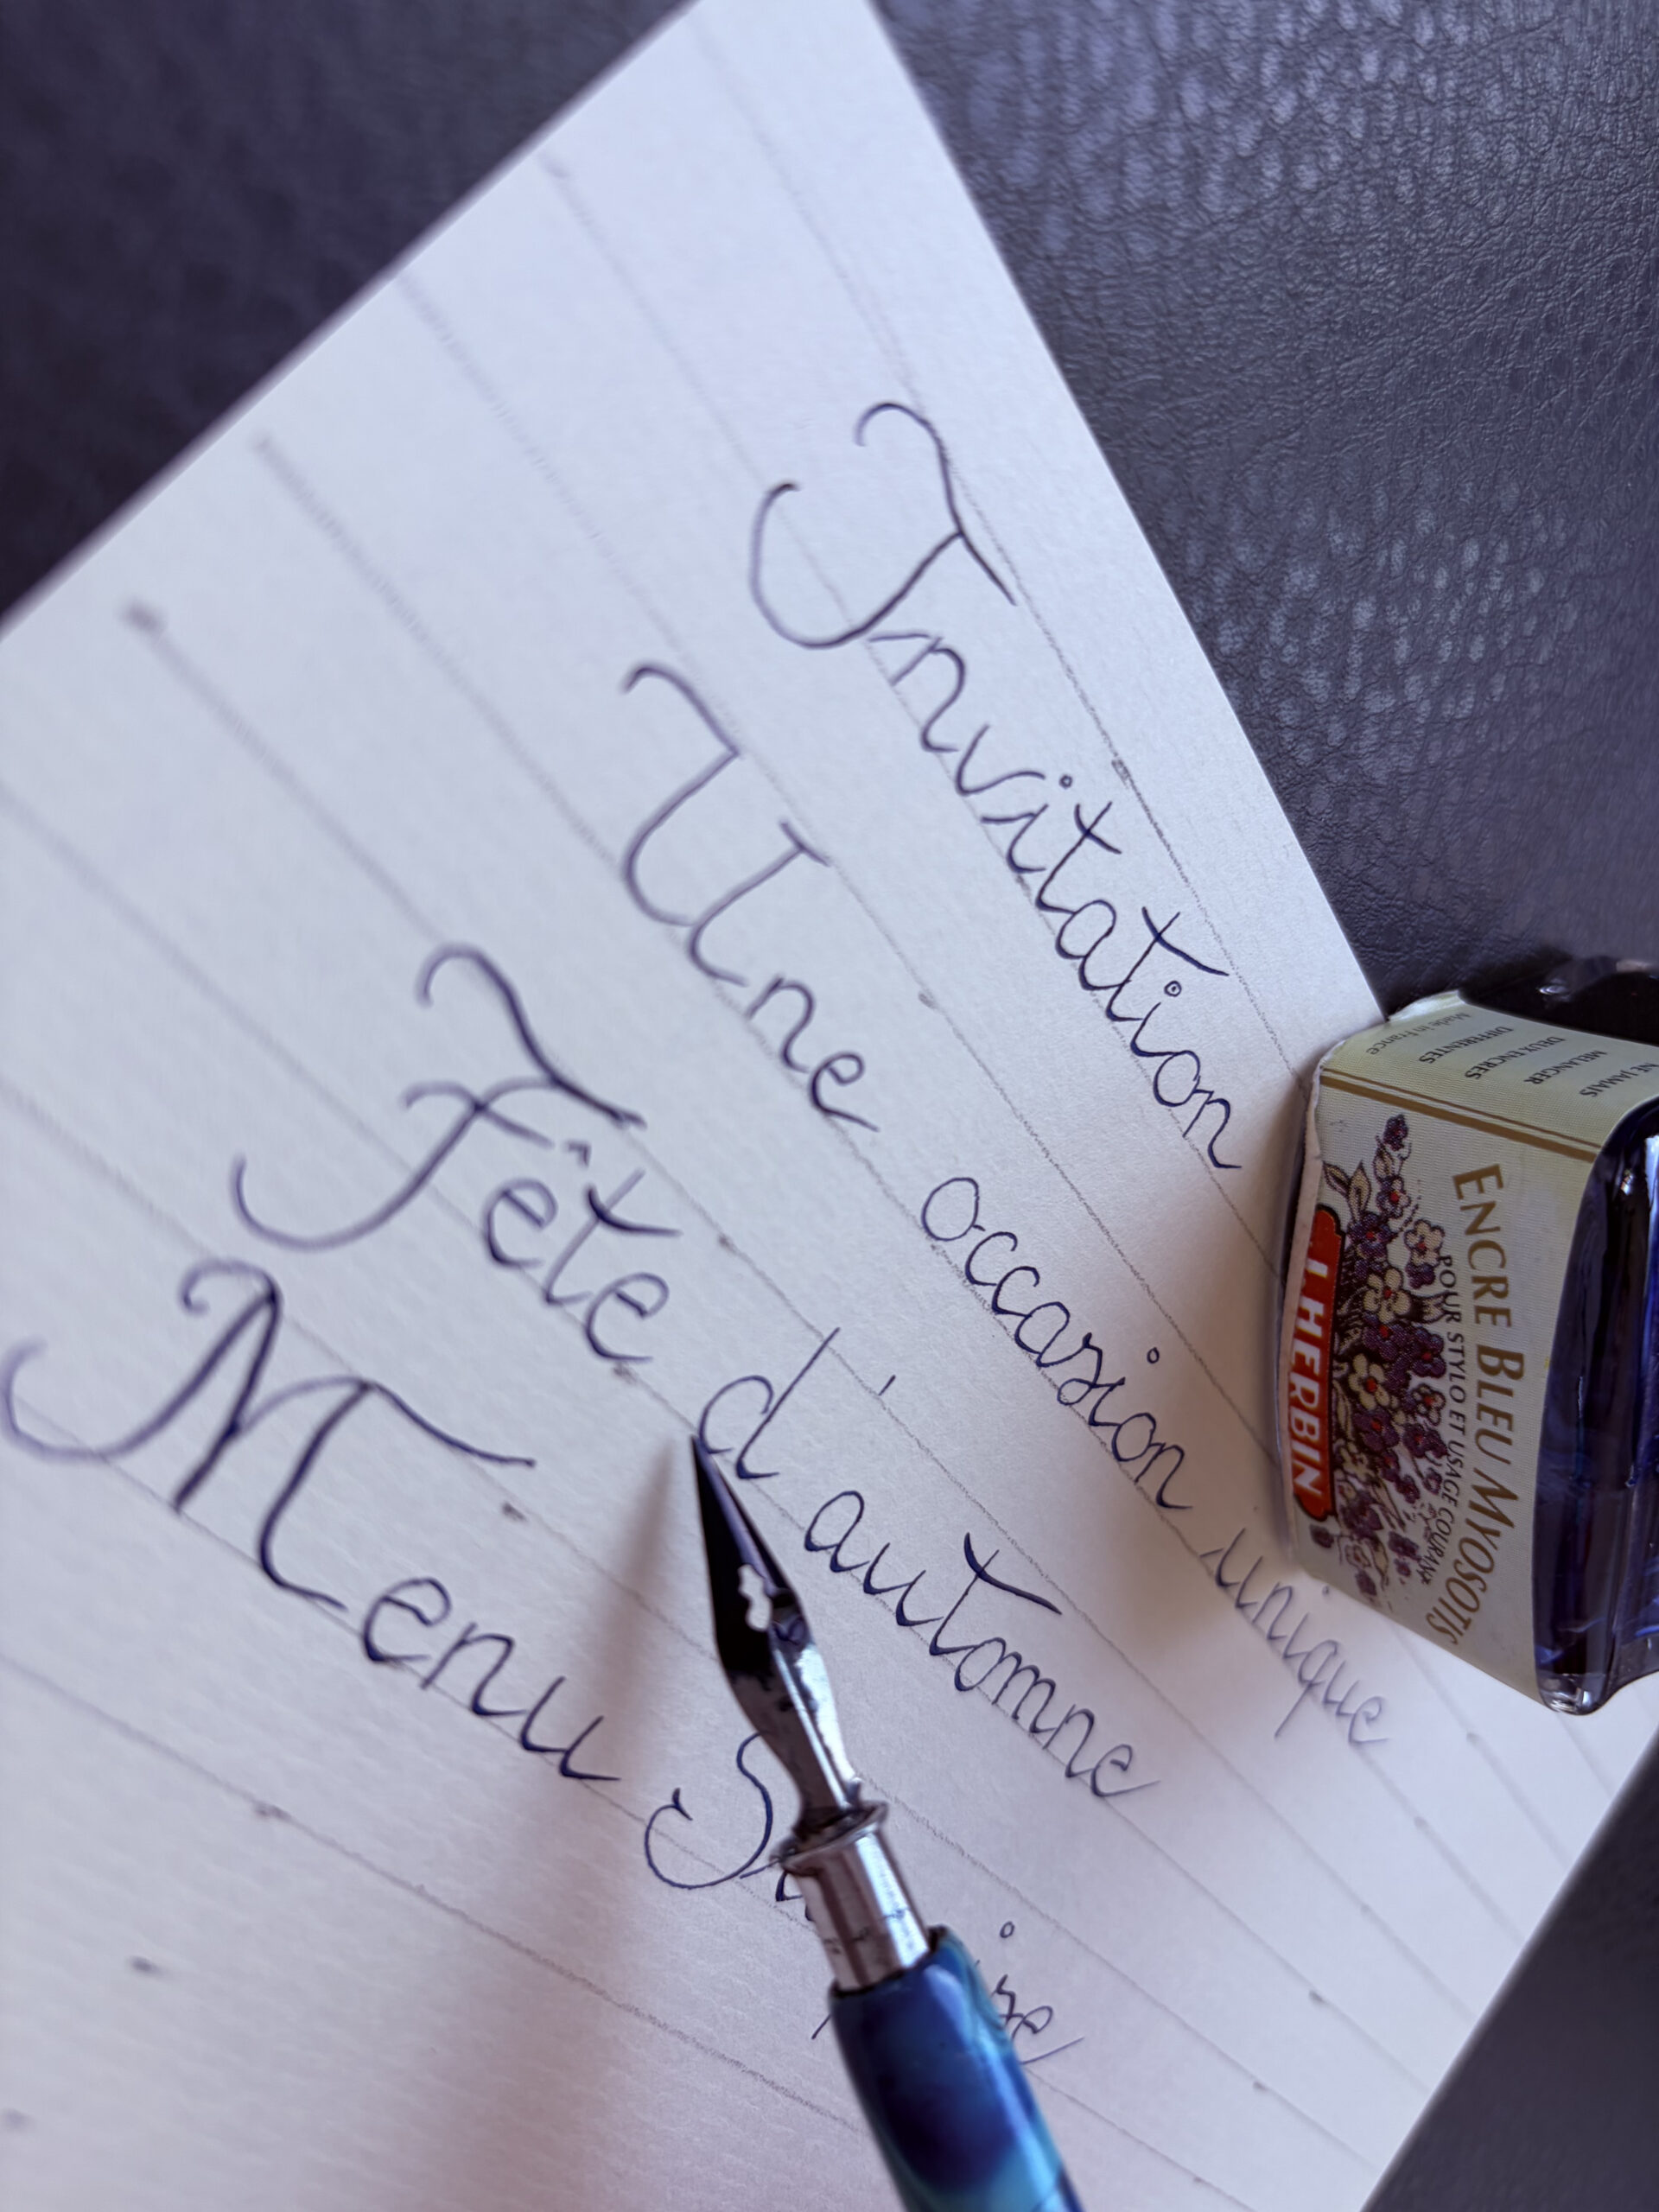 Invitation
Une occasion unique
Fête d'automne
Menu
NE JAMAIS
MELANGER
DEUX ENCRES
DIFFERENTES
Made in France
ENCRE BLEU MYOSOTIS
POUR STYLO ET USAGE COURANT
J. HERBIN